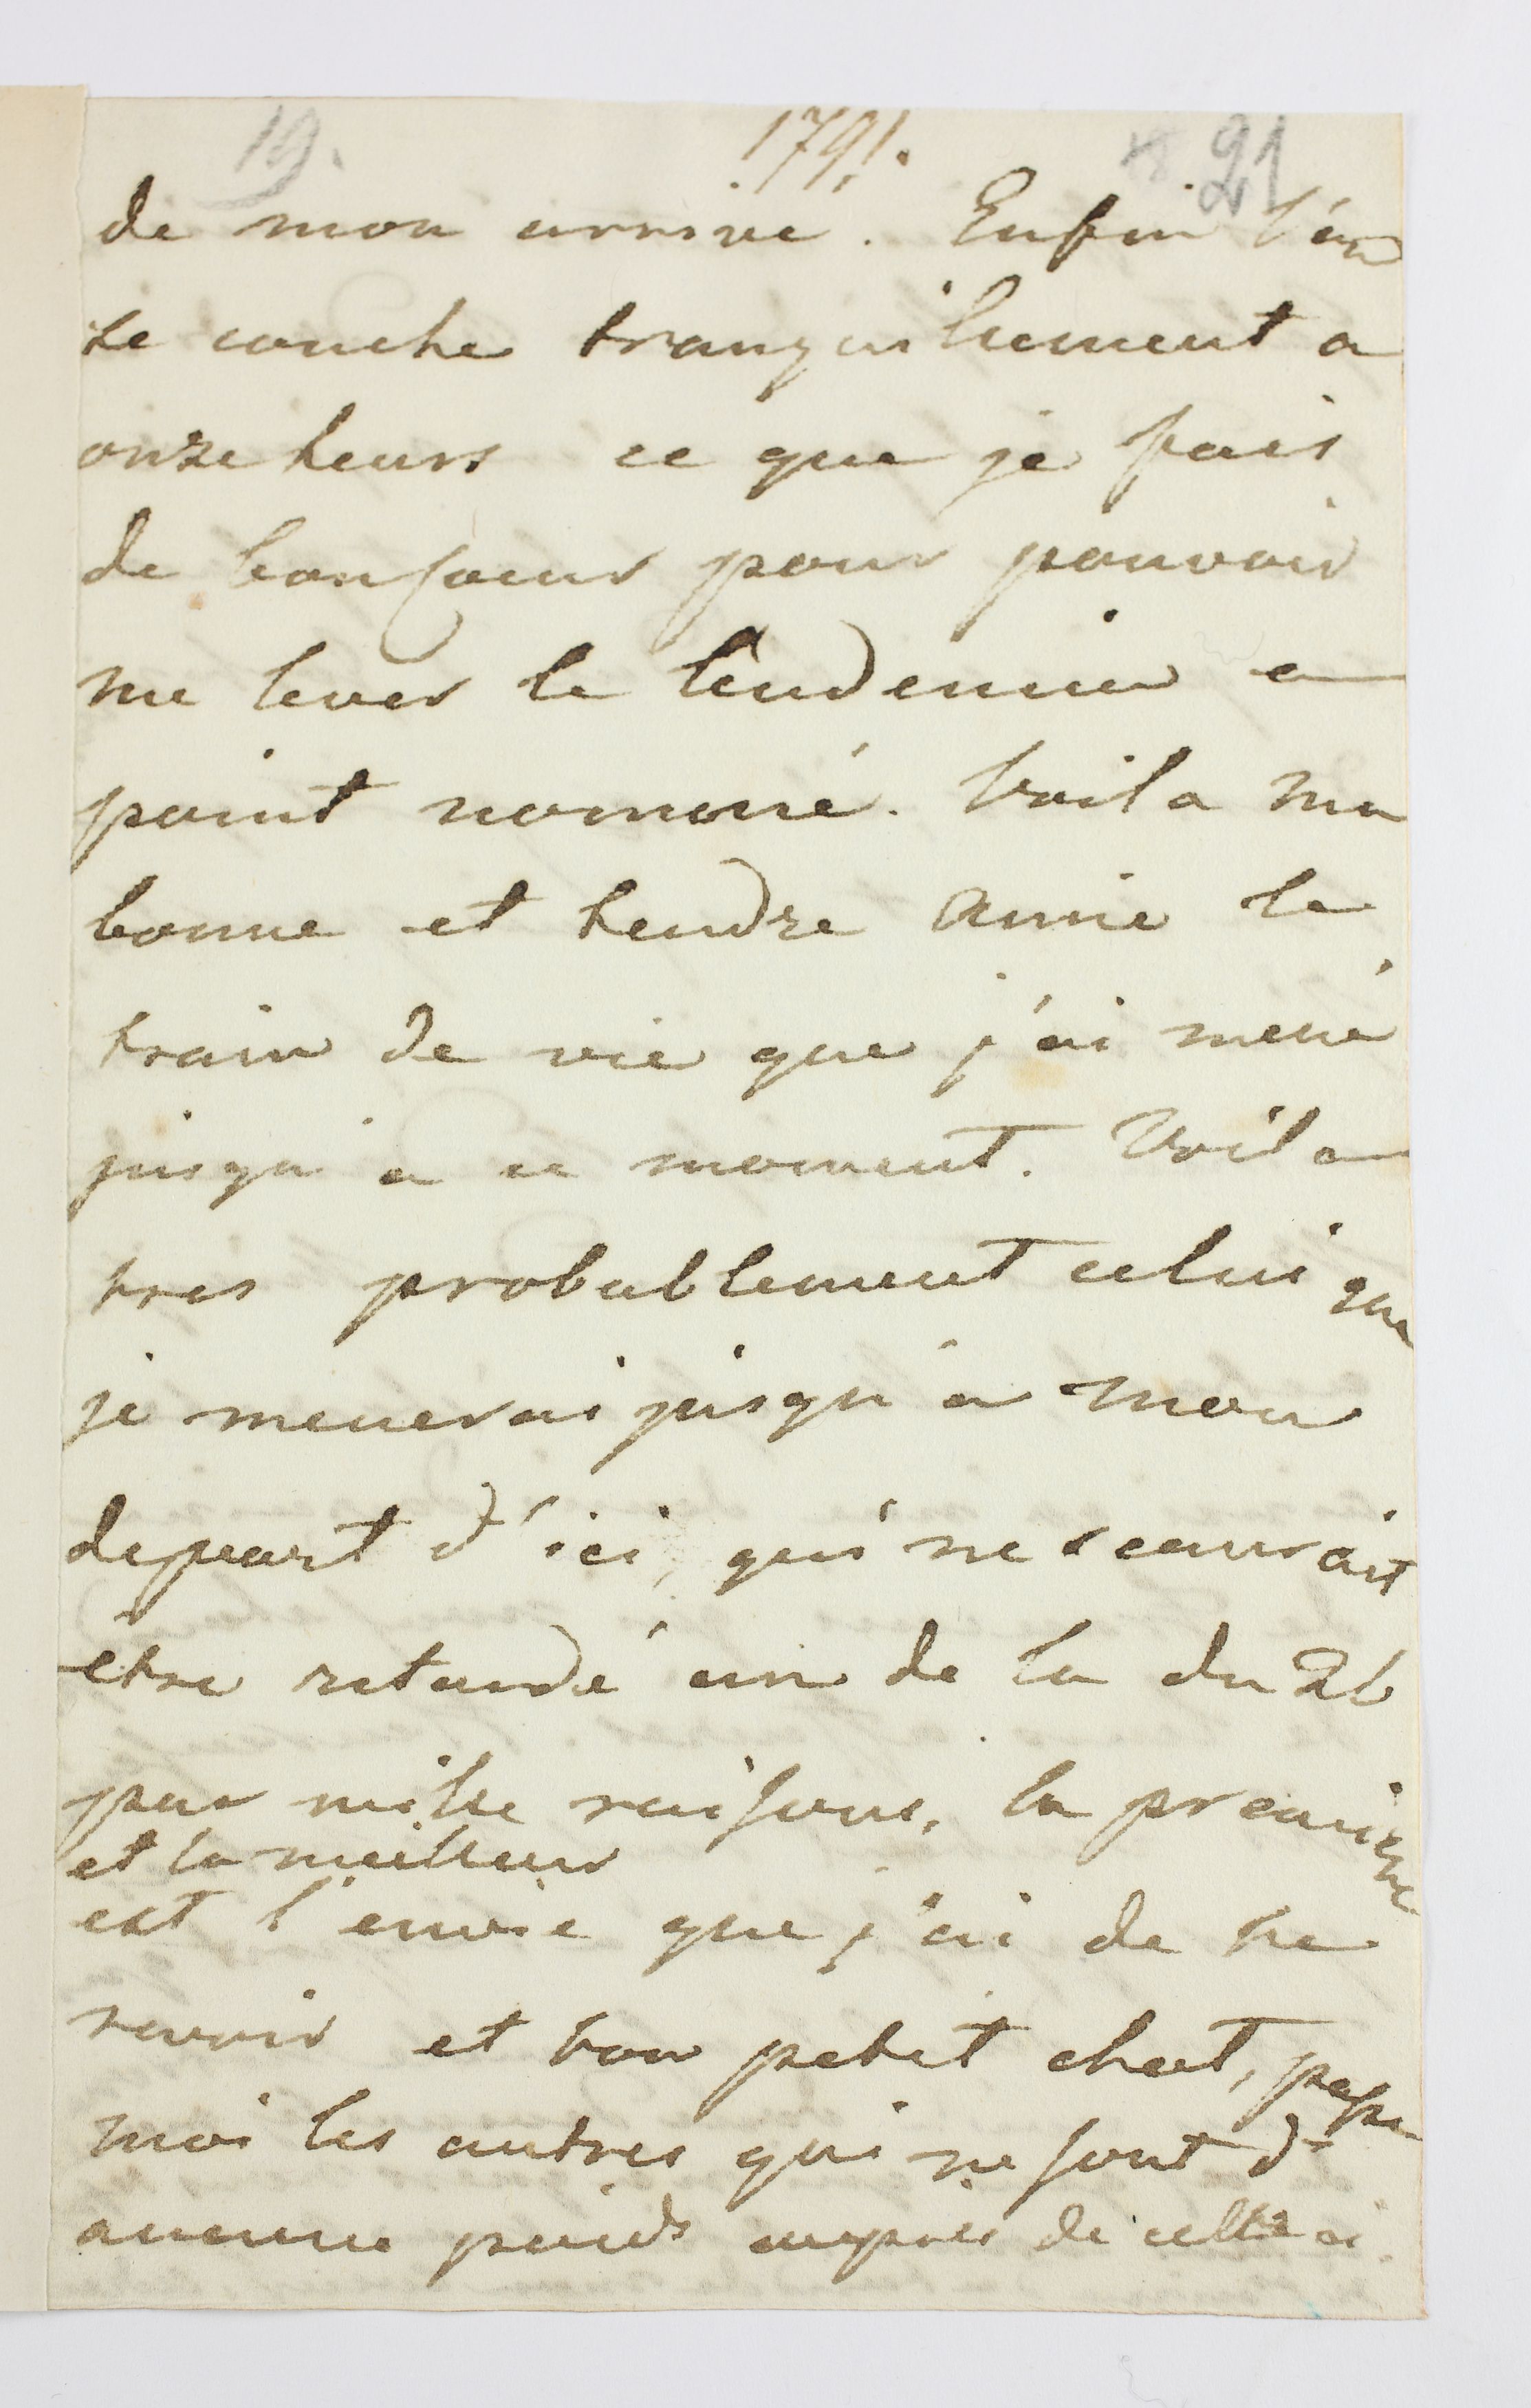 19. 1791. 21
de mon arrivé. Enfin l'on
se couche tranquillement a
onze heurs ce que je fais
de bon coeur pour pouvoir
me lever le lendemain a
point nommé. Voila ma
bonne et tendre Amie le
train de vie que j'ai mené
jusqu'a ce moment. Voila
tres probablement celui que
je menerai jusqu'a mon
depart d'ici, qui ne scaurait
etre retardé au de la du 26
par mille raisons, la premiere
et la meilleur
est l'envie que j'ai de te
revoir et bon petit chat, passe
moi les autres qui ne sont d'
aucune poids aupres de celle ci.